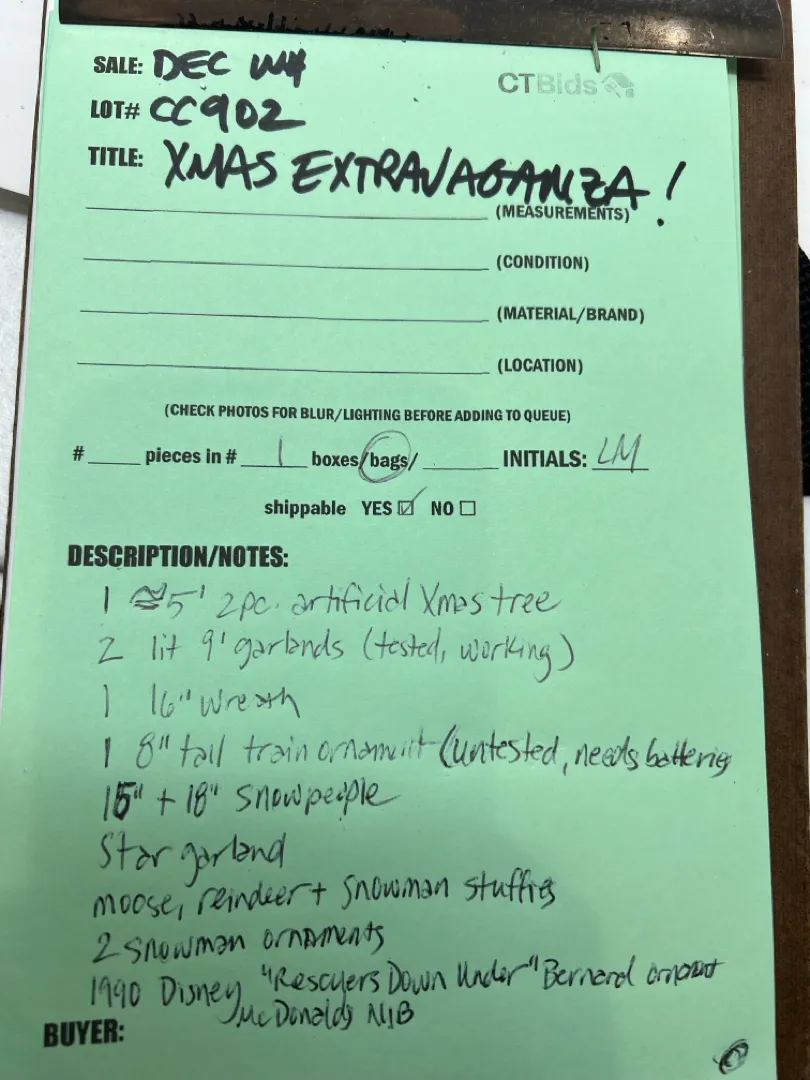 SALE: DEC W4
CTBids
LOT# CC902
TITLE: XMAS EXTRAVAGANZA!
(MEASUREMENTS)
(CONDITION)
(MATERIAL/BRAND)
(LOCATION)
(CHECK PHOTOS FOR BLUR/LIGHTING BEFORE ADDING TO QUEUE)
# ____ pieces in # 1 boxes/bags/ ____ INITIALS: LM
shippable YES ☑ NO ☐
DESCRIPTION/NOTES:
1 ≈5' 2pc. artificial Xmas tree
2 lit 9' garlands (tested, working)
1 16" wreath
1 8" tall train ornament (untested, needs batteries
15" + 18" snowpeople
Star garland
moose, reindeer + snowman stuffies
2 snowman ornaments
1990 Disney "Rescuers Down Under" Bernard ornament
McDonalds NIB
BUYER: